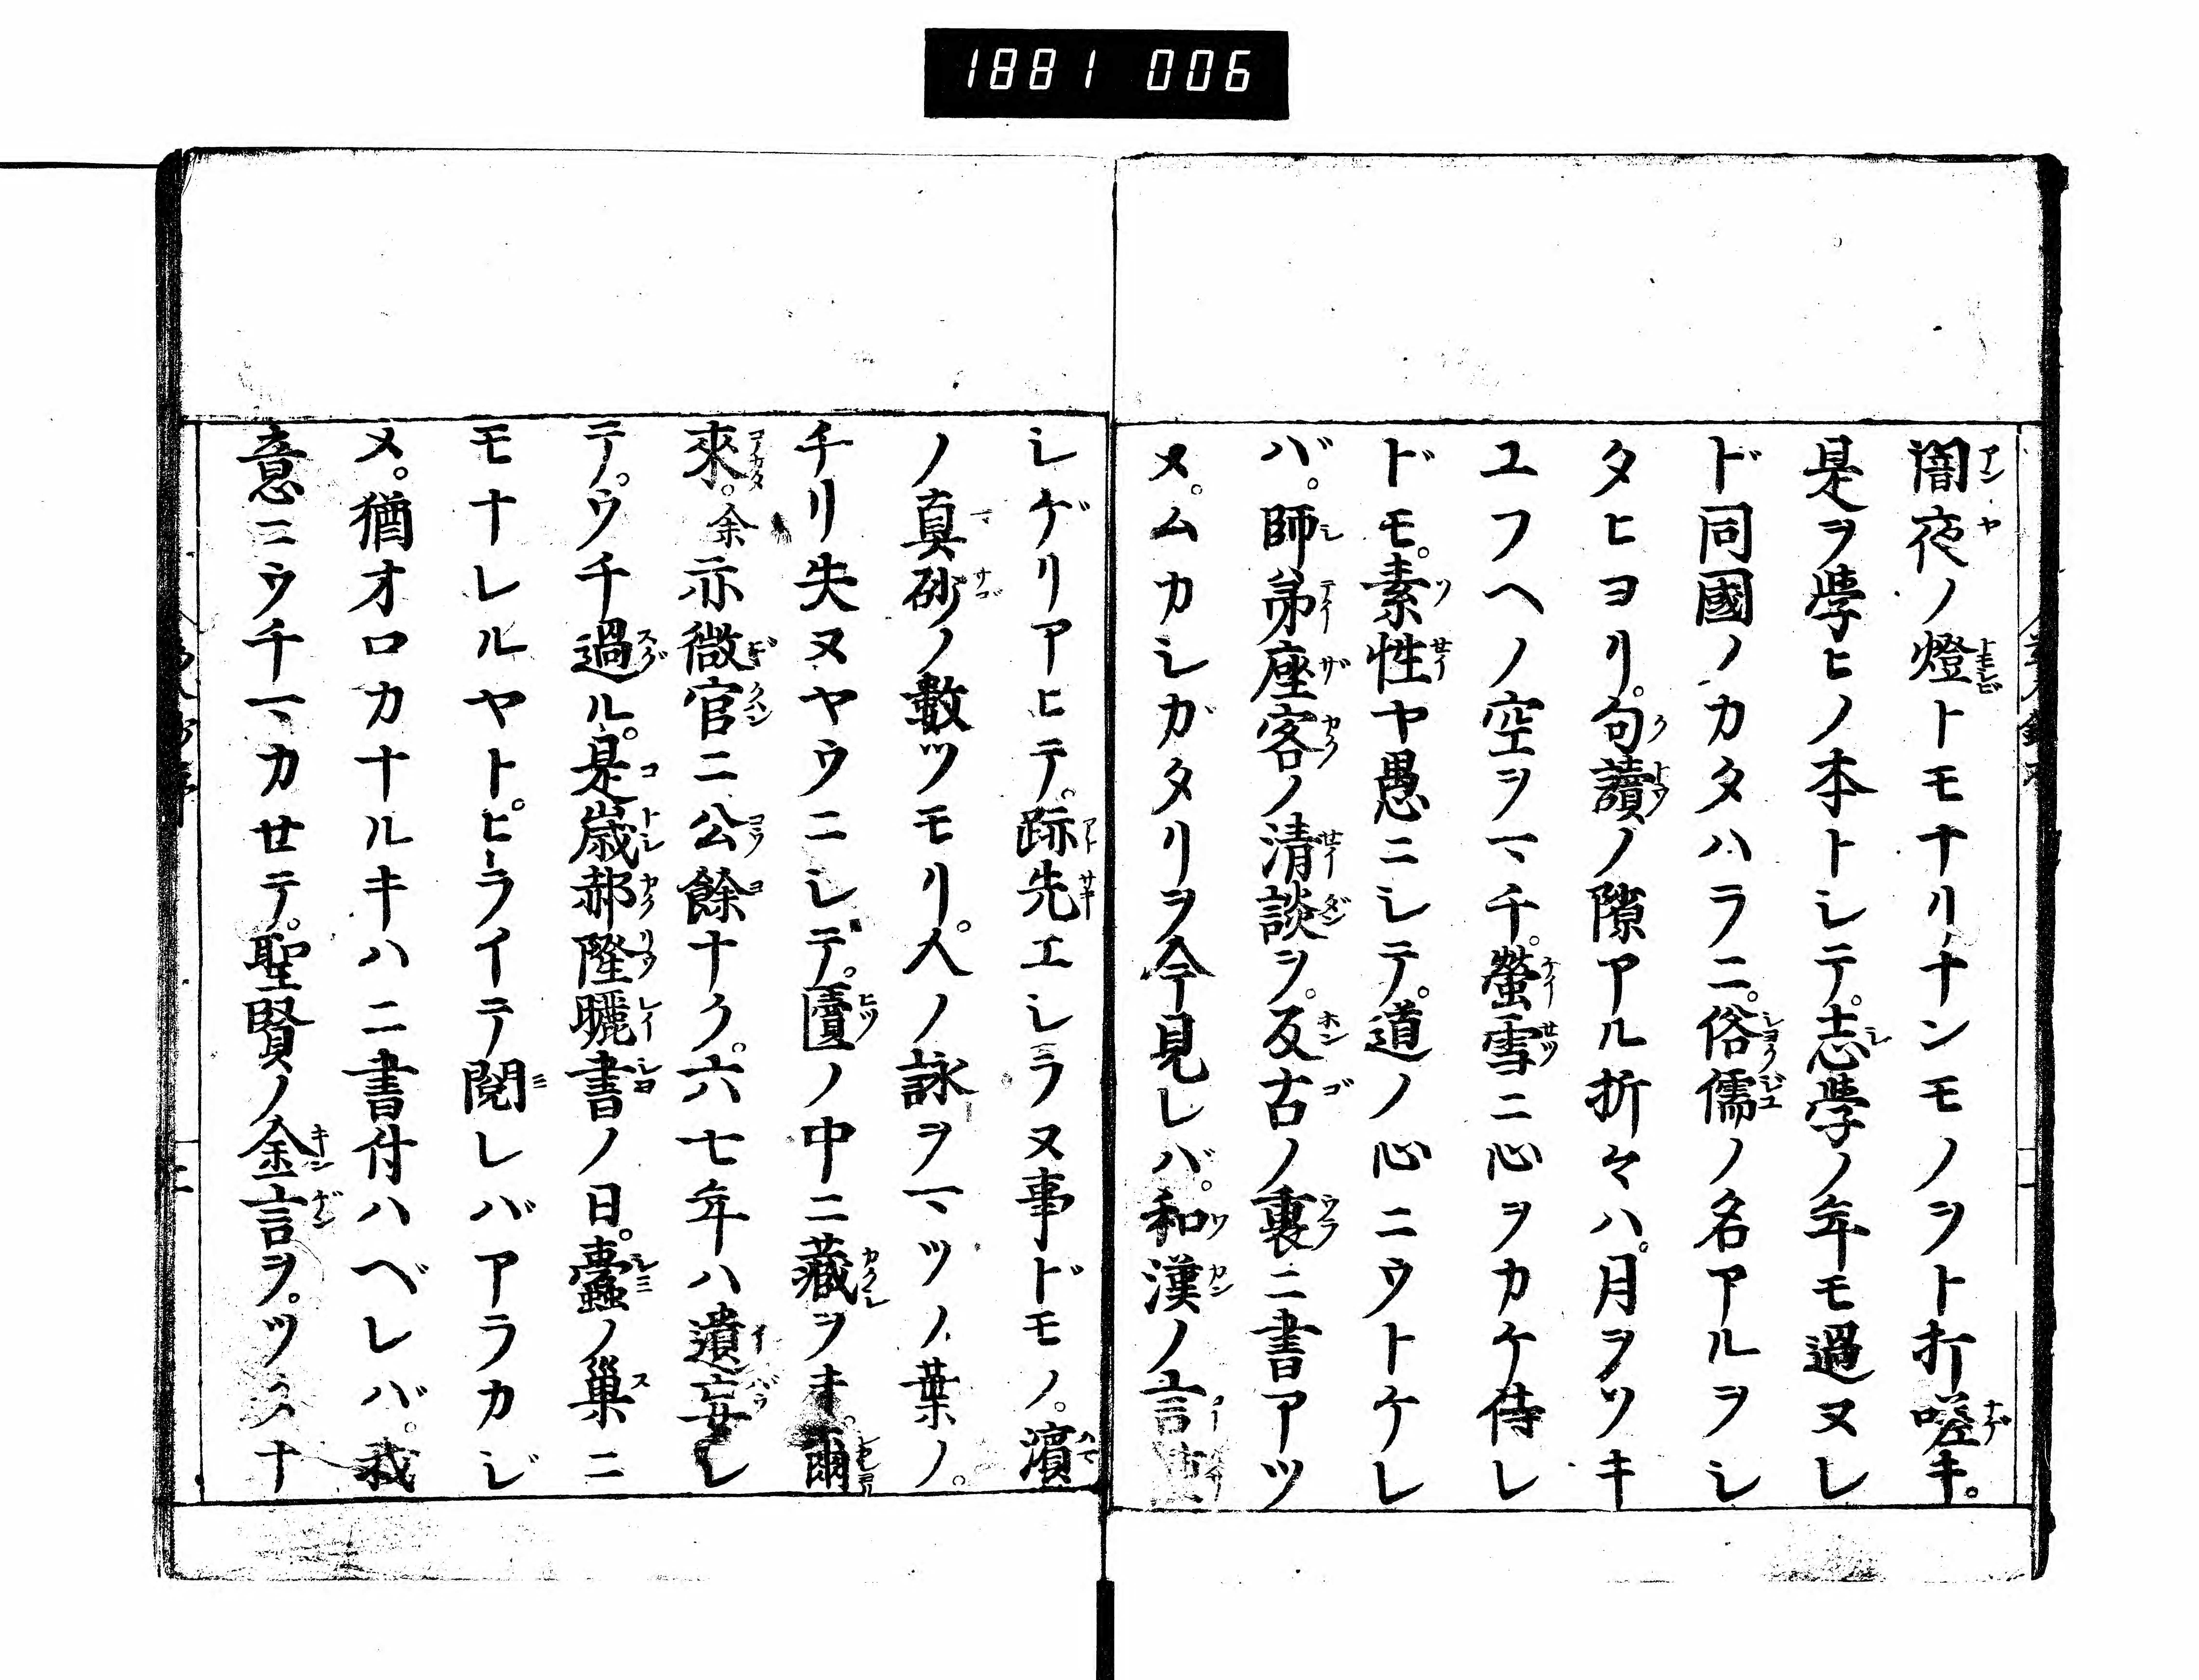 1881 006
闇夜ノ燈トモナリナンモノヲト折嗟キ。
是ヲ學ヒノ本トシテ。志學ノ年モ過ヌレ
ド同國ノカタハラニ。俗儒ノ名アルヲシ
タヒヨリ。句讀ノ隙アル折々ハ。月ヲツキ
ユフヘノ空ヲマチ。螢雪ニ心ヲカケ侍レ
ドモ。素性ヤ愚ニシテ。道ノ心ニウトケレ
バ。師弟座客ノ清談ヲ。反古ノ裏ニ書アツ
メ。ムカシガタリヲ今見レバ。和漢ノ言
シゲリアヒテ。跡先エシラヌ事ドモノ。濱
ノ真砂ノ數ツモリ。人ノ詠ヲマツノ葉ノ。
チリ失ヌヤウニシテ。匱ノ中ニ藏ヲキ。爾
來。余亦微官ニ公餘ナク。六七年ハ遺忘シ
テ。ウチ過ル。是歳郝隆曬書ノ日。蠹ノ巢ニ
モナレルヤト。ヒライテ閲レバアラカジ
メ。猶オロカナルキハニ書付ハベレバ。我
意ニウチマカセテ。聖賢ノ金言ヲ。ツ ナ